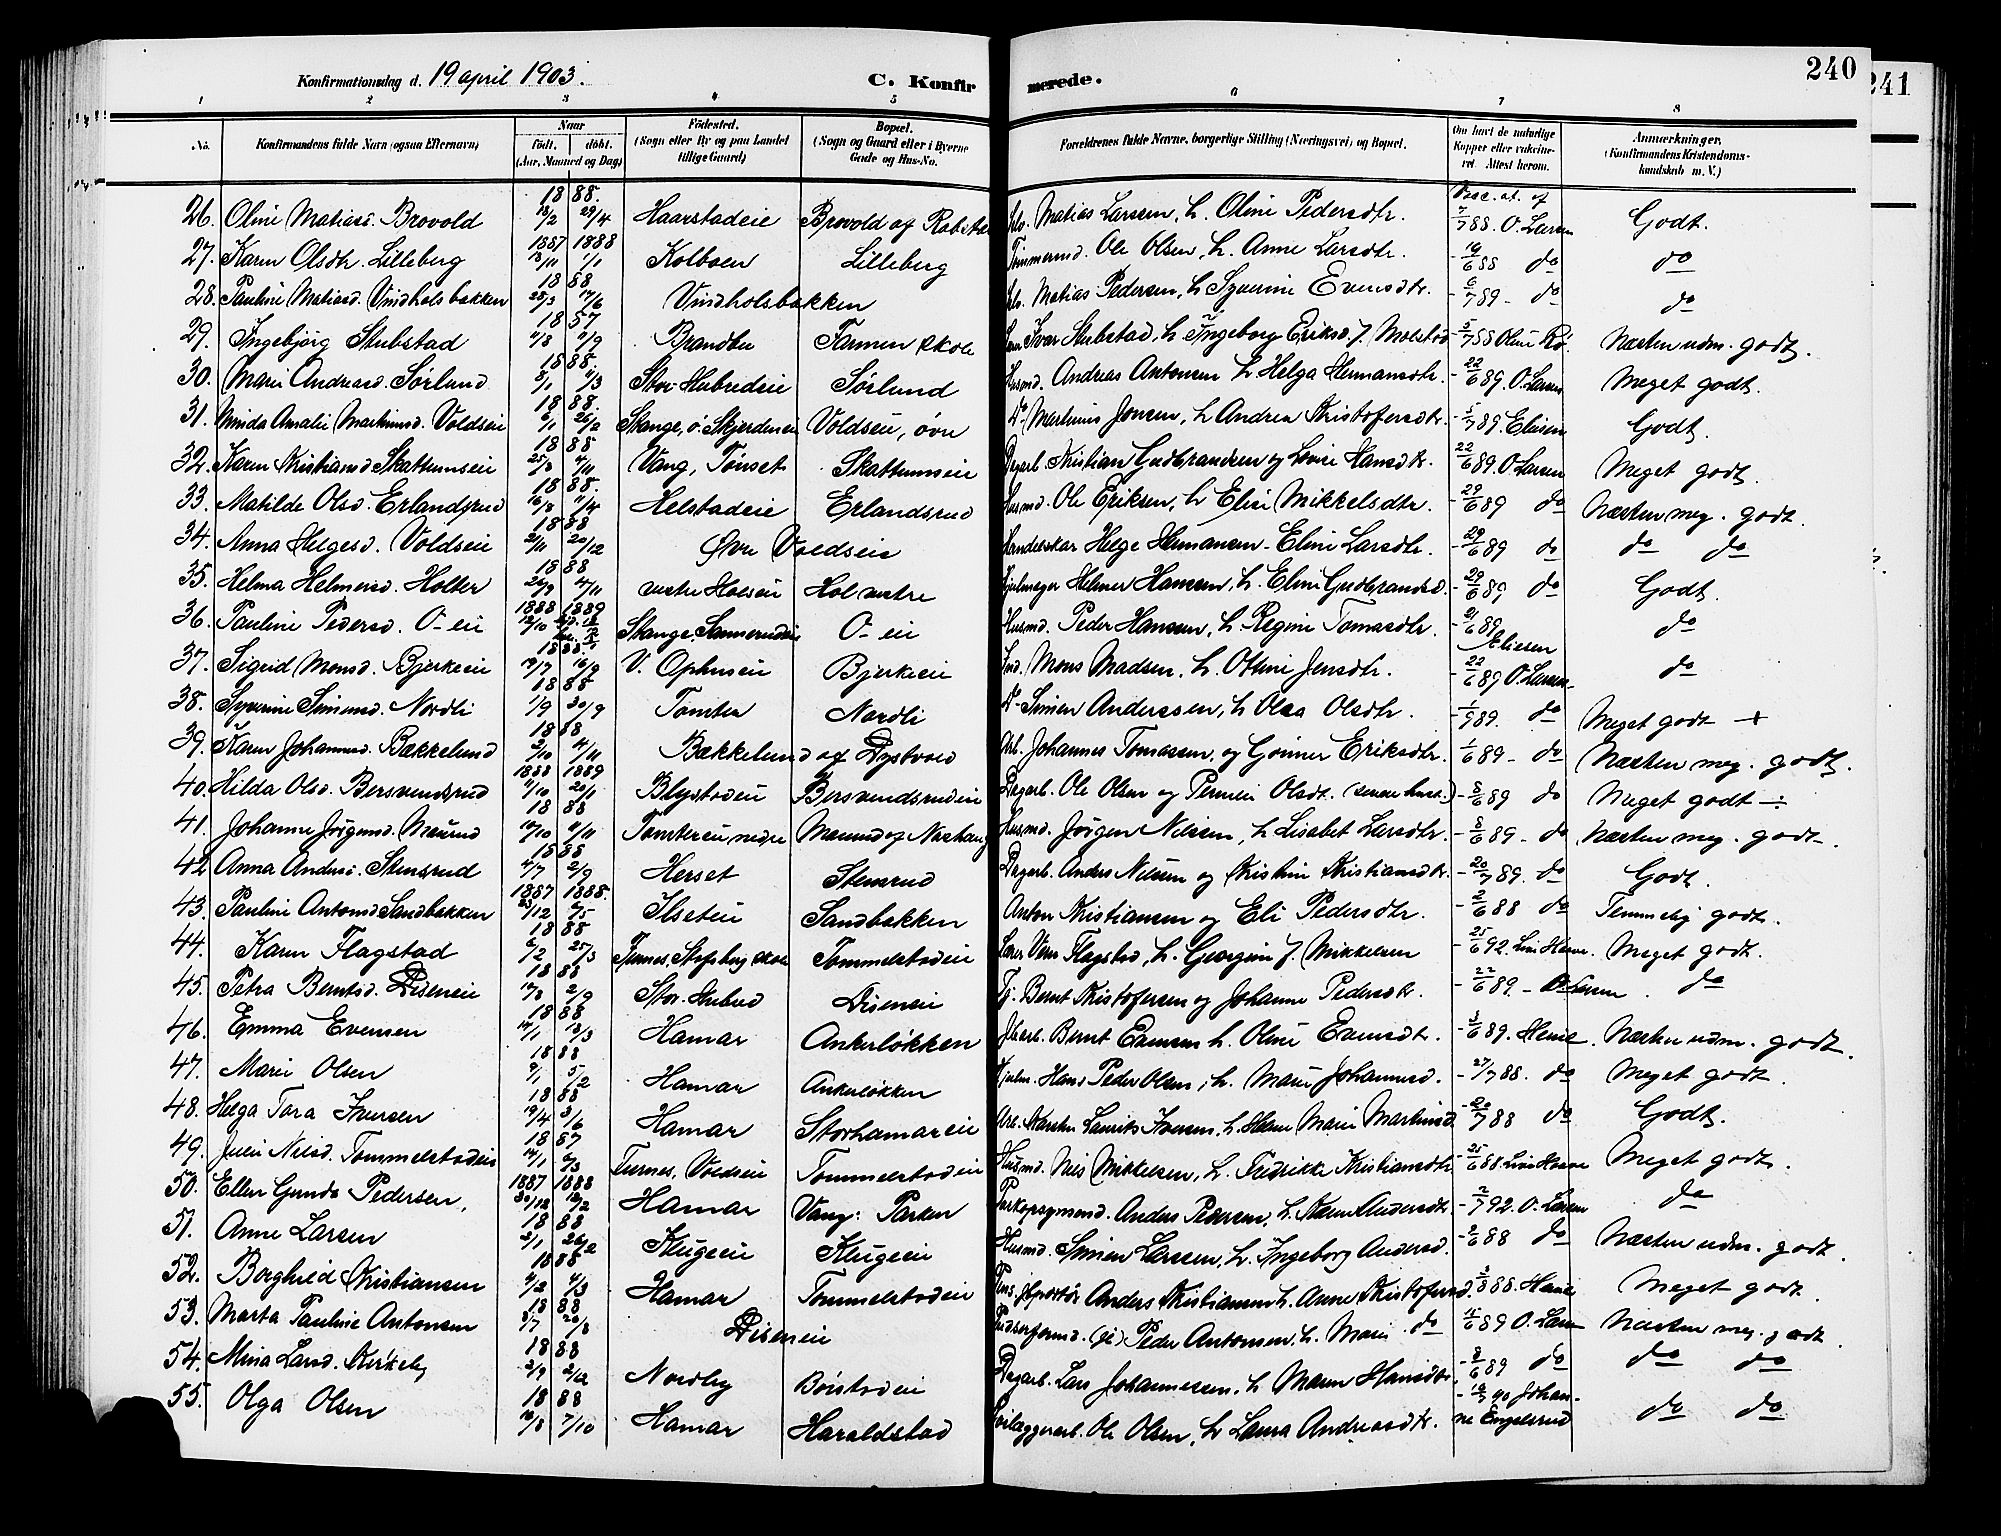 240
241
Konfirmationsdag d. 19 april 1903. C. Konfirmerede.
1 2 3 4 5 6 7 8
No. Konfirmandens fulde Navn (ogsaa Efternavn) Naar født. døbt. (Aar, Maaned og Dag) Fødested. (Sogn eller By og paa Landet tillige Gaard) Bopæl. (Sogn og Gaard eller i Byerne Gade og Hus-No. Forældrenes fulde Navne, borgerlige Stilling (Næringsvei) og Bopæl. Om havt de naturlige Kopper eller vaccineret. Attest herom. Anmærkninger, (Konfirmandens Kristendomskundskab m. V.)
26. Oline Matiasd. Brovold 1888. 18/2 29/4 Haarstadeie Brovold af Matias Larssen, h. Oline Pedersdtr. Vac. at. af 7/7 88. O. Larsen Godt.
27. Karen Olsdtr. Lilleberg 1887 18/11 1888 1/1 Kolboen Lilleberg Tømmermd. Ole Olsen, h. Anne Larsdtr. 19/6 88 do do
28. Pauline Matiasd. Vindholsbakken 1888 25/3 17/6 Vindholsbakken Matias Pedersen, h. Syverine Evensdtr. 6/7 89 - do do
29. Ingebjørg Stubstad 1887 4/8 11/9 Brandbu Farmen skole Lærer Ivar Stubstad, h. Ingeborg Eriksd. f. Molstad 5/7 88 Oline Rø. Næsten udm. godt.
30. Marie Andreasd. Sørlund 1888. 8/1 11/3 Stor-Hubredeie Sørlund Husmd. Andreas Antonsen h. Helga Hermansdtr. 22/6 89. O. Larsen Meget godt.
31. Minda Amalie Martinusd. Voldseie 1888. 6/1 26/2 Stange, ø. Skjerdeneie Voldseie, øvre Do Martinus Jonsen, h. Andrea Kristofersdtr. 5/7 89. Eliesen Godt.
32. Karen Kristiansd Skattumseie 1888 25/8 4/11 Vang, Tønset Skattumseie Dagarb. Kristian Gudbrandsen og Lovise Hansdtr. 22/6 89 O. Larsen Meget godt.
33. Matilde Olsd. Erlandsrud 1888. 16/3 11/4 Helstadeie Erlandsrud Husmd. Ole Eriksen, h. Elise Mikkelsdtr. 29/6 89 do Næsten meg. godt.
34. Anna Helgesd. Voldseie 1888 2/11 20/12 Øvre Voldseie Handelskar Helge Hermansen - Eline Larsdtr. 29/6 89 do do do
35. Helma Helmersd. Holter 1888 26/9 4/11 vestre Holseie Hol vestre Hjulmager Helmer Hanssen, h. Eline Gudbrandsd. 29/6 89, do Godt.
36. Pauline Pedersd. O-eie 1888 12/10 1889 Stange, Sannerudeie O-eie Husmd. Peder Hansen, h. Regine Tomasdtr. 21/6 89, Eliesen do
37. Sigrid Monsd. Bjerkeeie 1888 19/7 16/9 V. Ophuseie Bjerkeeie Ind. Mons Madsen, h. Oline Jensdtr. 22/6 89 O. Larsen do
38. Syverine Simensd. Nordli 1888 1/9 30/9 Tomter Nordli Do Simen Anderssen, h. Olea Olsdtr. 1/9 89. do Meget godt +
39. Karen Johannesd. Bækkelund 1888 2/10 4/11 Bækkelund af Dystvold Arb. Johannes Tomassen, og Gunner Eriksdtr. 1/6 89 - do Næsten meg. godt.
40. Hilda Olsd. Bersvendsrud 1888 11/10 1889 20/1 Blystadeie Bersvendsrudeie Dagarb. Ole Olsen og Pernelie Olsdt. (senere hust.) 8/6 89 do Meget godt ÷
41. Johanne Jørgensd. Maurud 1888 14/10 4/11 Tomtereie, nedre Maurud af Nashaug Husmd. Jørgen Nilsen, h. Lisabet Larsdtr. 8/6 89 - do Næsten meg. godt.
42 Anna Andersd. Stensrud 1888 4/7 2/9 Herset Stensrud Dagarb. Anders Nilsen og Kristine Kristiansdtr. 20/7 89. do Godt.
43. Pauline Antonsd Sandbakken 1887 23/12 1888. 6/5 Ilseteie Sandbakken Anton Kristiansen og Eli Pedersdtr. 2/6 88 do Temmelig godt.
44. Karen Flagstad 1888 6/2 25/3 Furnes, Stafsberg skole Tommelstadeie Lærer Flagstad, h. Georgine f. Mikkelsen 25/6 92. Meget godt.
45. Petra Berntsd. Diseneie 1888 19/8 2/9 Stor-Hubred Diseneie Tj. Bernt Kristofersen og Johanne Pedersdtr. 22/6 89. - O. Larsen do
46. Emma Evensen 1888 14/1 18/3 Hamar Ankerløkken Jbarb. Bernt Evensen h. Oline Evensdtr. 3/6 89. Heuie. Næsten udm. godt.
47. Marie Olsen 1888 9/1 5/2 Hamar Ankerløkken Hjulm. Hans Peder Olsen, h. Marie Johannesd. 27/7 88. do Meget godt.
48. Helga Tora Iversen 1888 19/4 3/6 Hamar Storhamareie Arb. Karsten Laurits Iversen, h. Marie Martinsd. 20/7 88 do Godt.
49. Julie Nilsd. Tommelstadeie 1887 14/1 6/3 Furnes, Voldseie Tommelstadeie Husmd. Nils Mikkelsen, h. Fredrikke Kristiansdtr. 25/6 88. Meget godt.
50. Ellen Gunda Pedersen, 1887 30/12 1888 12/2 Hamar Vang: Parken Parkopsynsmd. Anders Pedersen, h. Karen Andersdtr. 2/7 92. O. Larsen do
51. Anne Larsen 1888 2/1 26/2 Klugeeie Klugeeie Husmd. Simen Larssen, h. Ingeborg Andersd. 2/6 88 do Næsten udm. godt.
52. Borghild Kristiansen 1888 4/2 4/3 Hamar Tommelstadeie Anders Kristiansen h. Anne Kristofersd. 3/8 88. Meget godt.
53. Marta Pauline Antonsen 1888 8/7 20/8 Diseneie Peder Antonsen, h. Marie do 15/6 89 O. Larsen Næsten meg. godt.
54. Mina Larsd. Kirkeby 1888 3/9 2/12 Nordby Børstadeie Dagarb. Lars Johannessen, h. Maren Hansdtr. 8/6 89 do do do
55. Olga Olsen 1888 19/8 7/10 Hamar Haraldstad Ole Olsen, h. Laura Andreasdtr. 90 Johanne Engelsrud do do